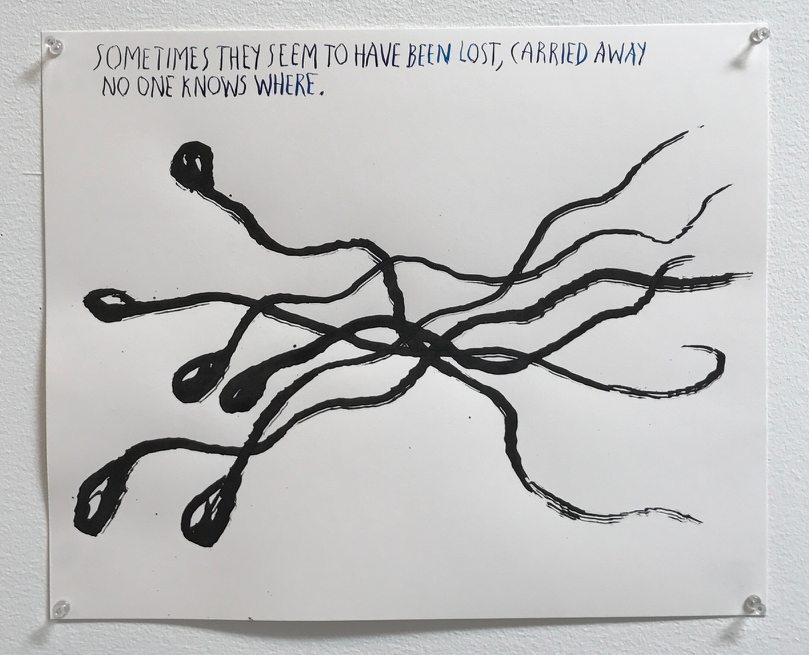 SOMETIMES THEY SEEM TO HAVE BEEN LOST, CARRIED AWAY
NO ONE KNOWS WHERE.